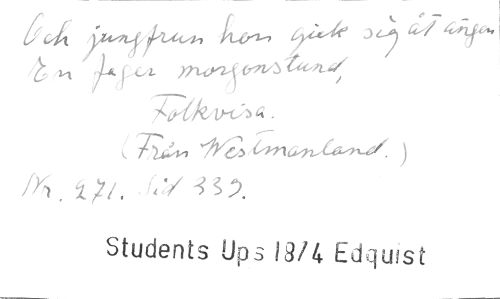 Och jungfrun hon gick sig åt ängen
En fager morgonstund,
Folkvisa.
(Från Westmanland.)
Nr. 271. Sid 339.
Students Ups 18/4 Edquist